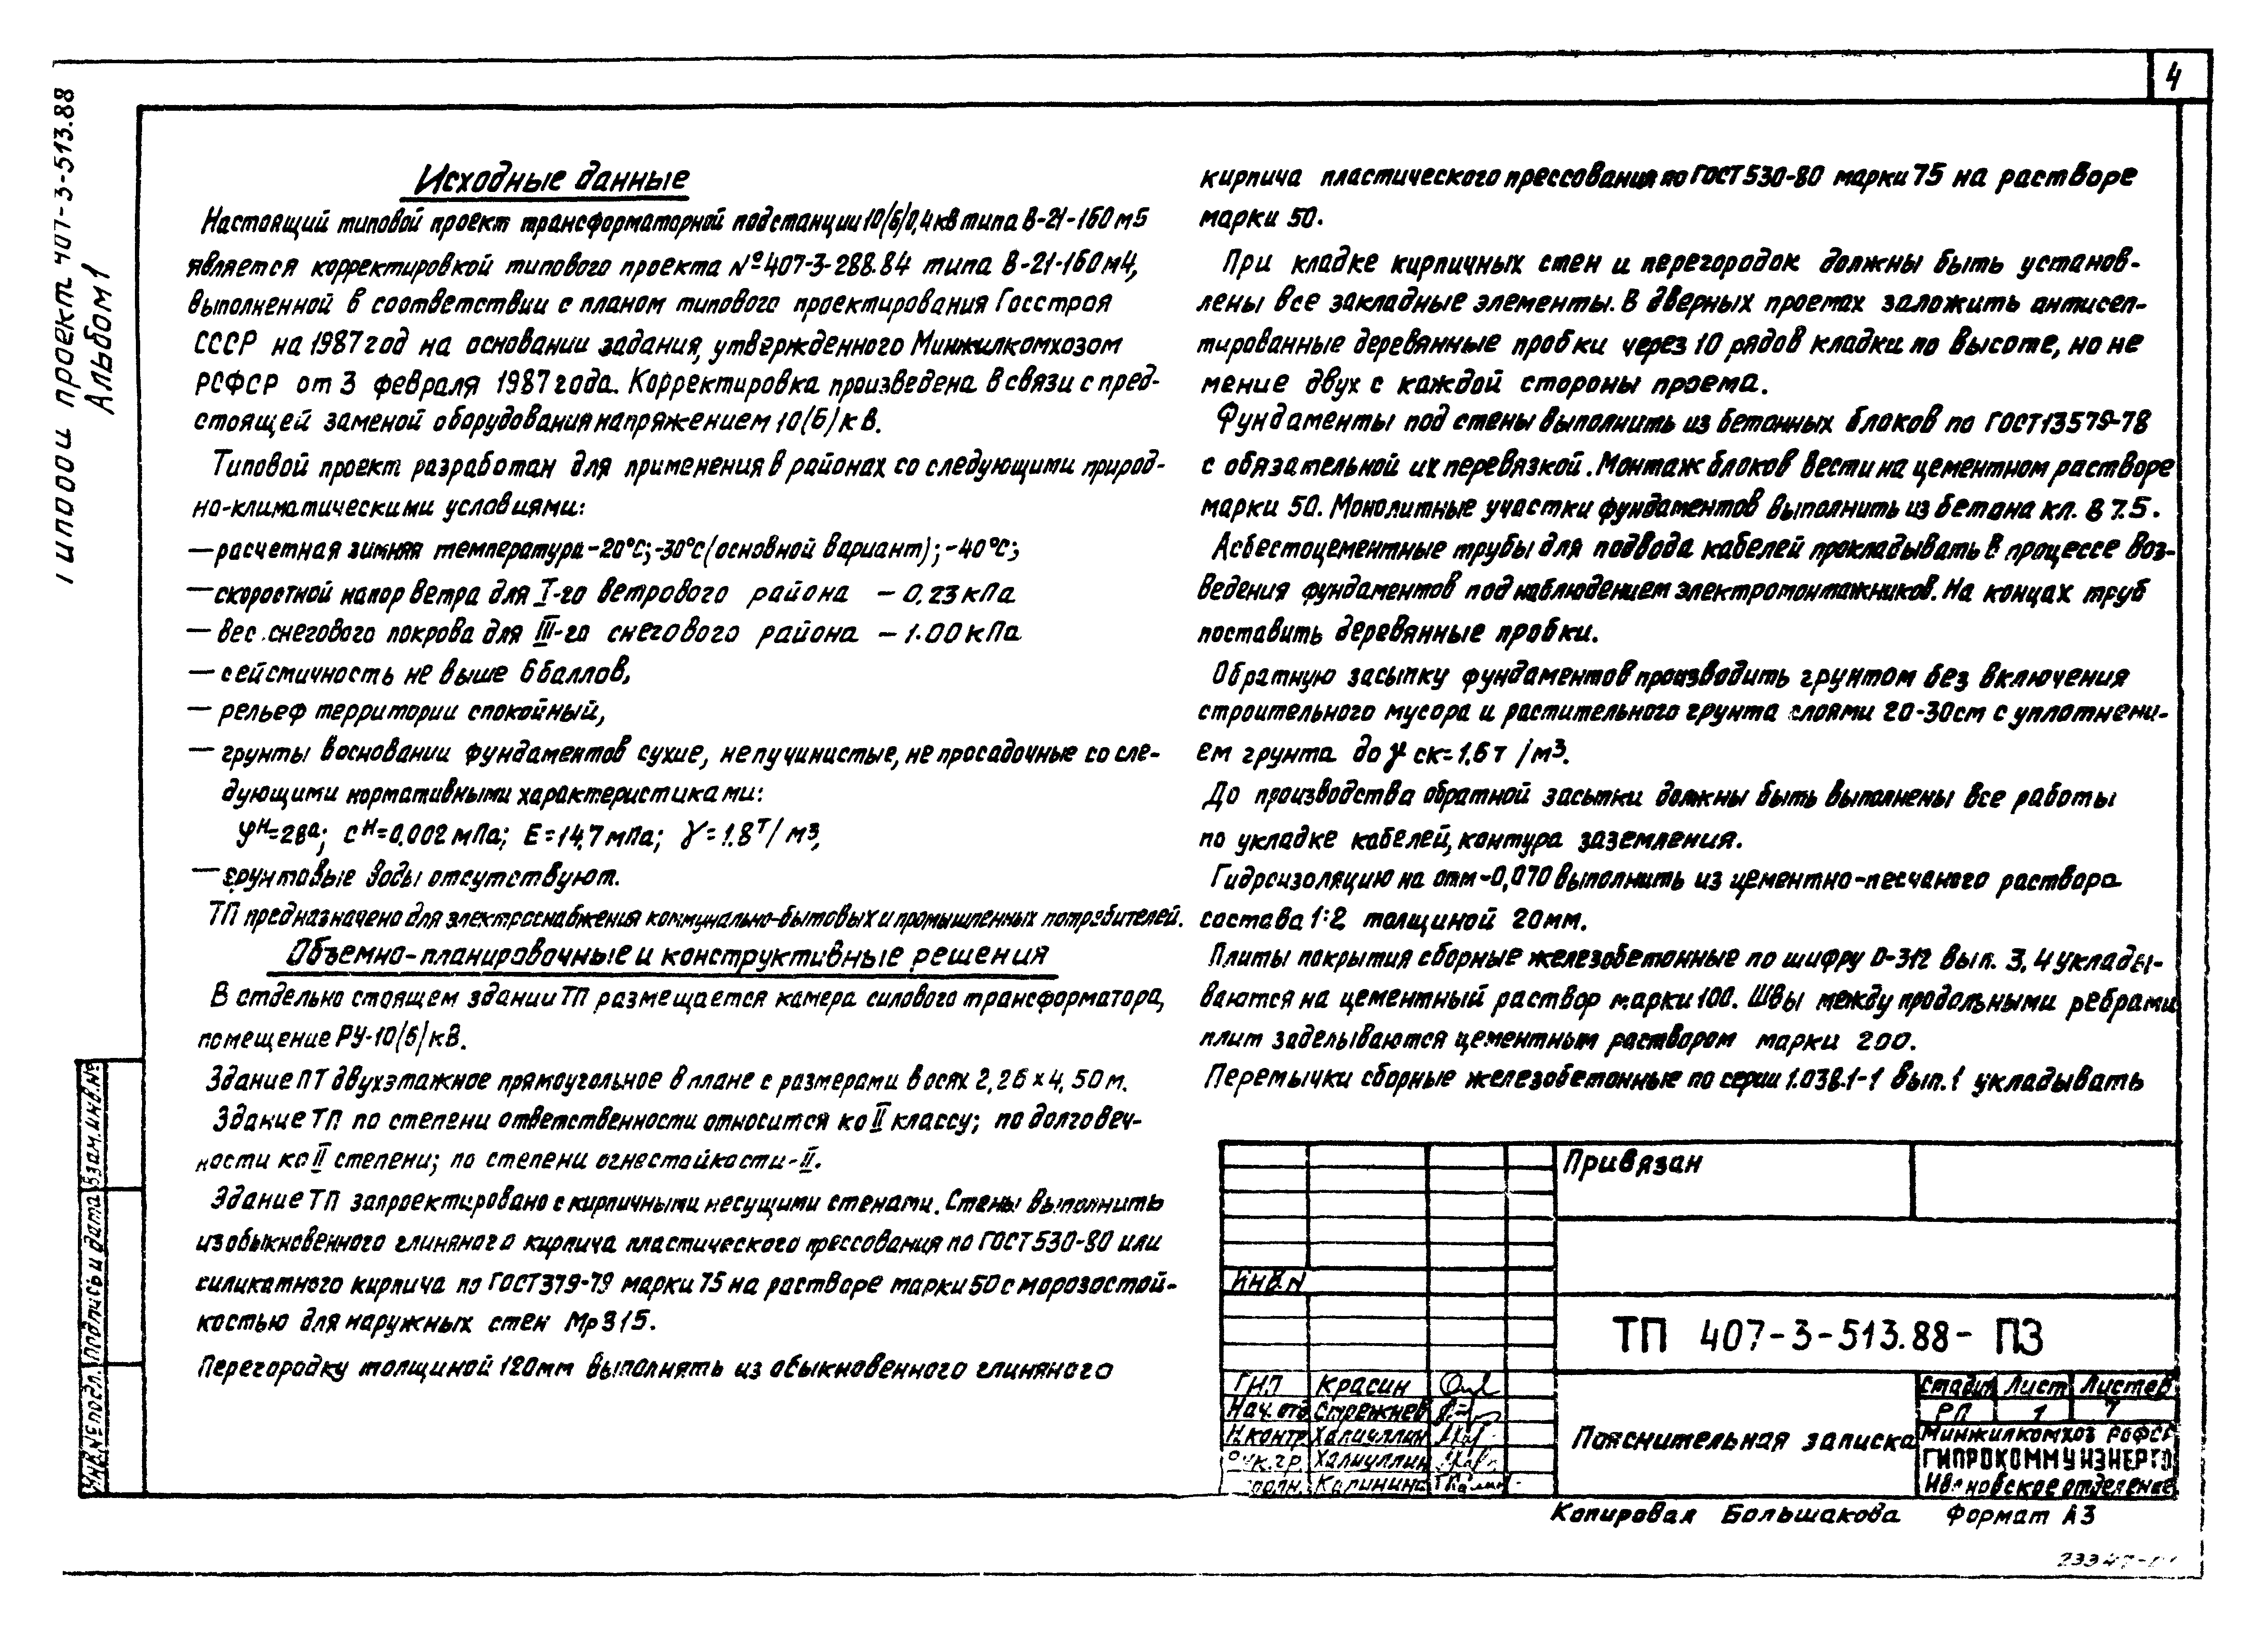 4
Типовой проект 407-3-513.88
Альбом 1
Исходные данные
Настоящий типовой проект трансформаторной подстанции 10/6/0,4кв типа В-21-160м5
является корректировкой типового проекта №407-3-288.84 типа В-21-160м4,
выполненной в соответствии с планом типового проектирования Госстроя
СССР на 1987 год на основании задания, утвержденного Минжилкомхозом
РСФСР от 3 февраля 1987 года. Корректировка произведена в связи с пред-
стоящей заменой оборудования напряжением 10(6)кВ.
Типовой проект разработан для применения в районах со следующими природ-
но-климатическими условиями:
— расчетная зимняя температура -20°С; -30°С (основной вариант); -40°С;
— скоростной напор ветра для I-го ветрового района – 0.23 кПа
— вес снегового покрова для III-го снегового района – 1.00 кПа
— сейстичность не выше 6 баллов,
— рельеф территории спокойный,
— грунты в основании фундаментов сухие, непучинистые, не просадочные со сле-
дующими нормативными характеристиками:
φн=28°; Сн=0.002мПа; Е=14.7мПа; γ=1.8т/м3,
— грунтовые воды отсутствуют.
ТП предназначено для электроснабжения коммунально-бытовых и промышленных потребителей.
Объемно-планировочные и конструктивные решения
В отдельно стоящем здании ТП размещается камера силового трансформатора,
помещение РУ-10/6/кВ.
Здание ПТ двухэтажное прямоугольное в плане с размерами в осях 2,26 x 4,50 м.
Здание ТП по степени ответственности относится ко II классу; по долговеч-
ности ко II степени; по степени огнестойкости-II.
Здание ТП запроектировано с кирпичными несущими стенами. Стены выполнить
из обыкновенного глиняного кирпича пластического прессования по ГОСТ 530-80 или
силикатного кирпича по ГОСТ 379-79 марки 75 на растворе марки 50 с морозостой-
костью для наружных стен Мрз 15.
Перегородку толщиной 120мм выполнять из обыкновенного глиняного
кирпича пластического прессования по ГОСТ 530-80 марки 75 на растворе
марки 50.
При кладке кирпичных стен и перегородок должны быть установ-
лены все закладные элементы. В дверных проемах заложить антисеп-
тированные деревянные пробки через 10 рядов кладки по высоте, но не
мение двух с каждой стороны проема.
Фундаменты под стены выполнить из бетонных блоков по ГОСТ 13579-78
с обязательной их перевязкой. Монтаж блоков вести на цементном растворе
марки 50. Монолитные участки фундаментов выполнить из бетона кл. В 7.5.
Асбестоцементные трубы для подвода кабелей прокладывать в процессе воз-
ведения фундаментов под наблюдением электромонтажников. На концах труб
поставить деревянные пробки.
Обратную засыпку фундаментов производить грунтом без включения
строительного мусора и растительного грунта слоями 20-30см с уплотнени-
ем грунта до γ ск=1,6т/м3.
До производства обратной засыпки должны быть выполнены все работы
по укладке кабелей, контура заземления.
Гидроизоляцию на отм-0,070 выполнить из цементно-песчаного раствора
состава 1:2 толщиной 20мм.
Плиты покрытия сборные железобетонные по шифру 0-312 вып. 3,4 уклады-
ваются на цементный раствор марки 100. Швы между продольными ребрами
плит заделываются цементным раствором марки 200.
Перемычки сборные железобетонные по серии 1.038.1-1 вып.1 укладывать
Привязан
ИНВ.N
ТП 407-3-513.88- ПЗ
ГИП Красин
Нач. отд Стрежнев
Н.контр Халиуллин
Рук.гр. Халиуллин
Калинина
Пояснительная записка
Стадия Лист Листов
РП 1 7
Минжилкомхоз РСФСР
ГИПРОКОММУНЭНЕРГО
Ивановское отделение
Взам.инв.№
Подпись и дата
Инв.№ подл.
Копировал Большакова Формат А3